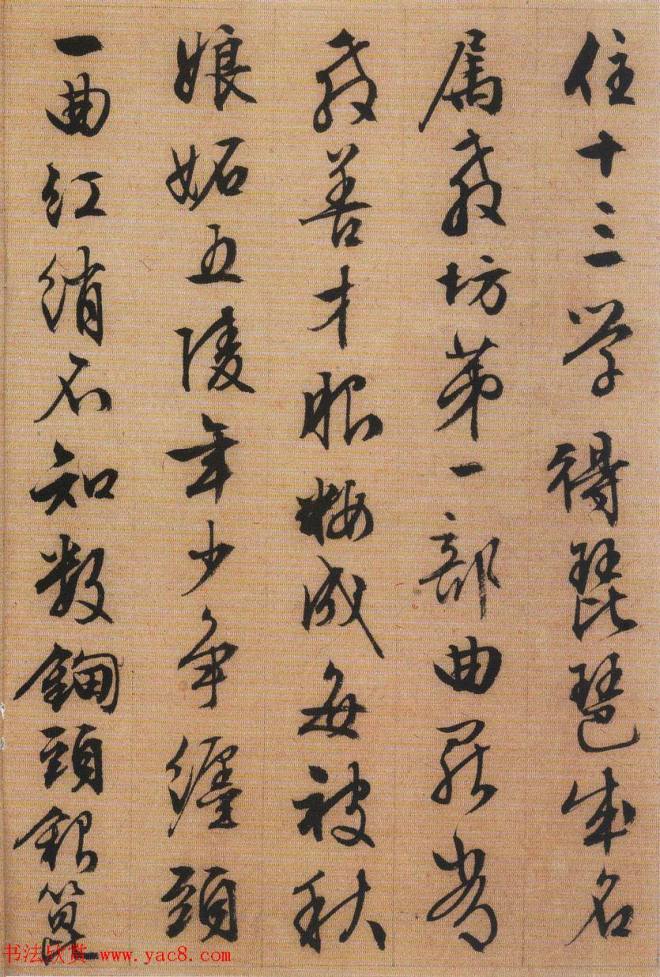 住十三学得琵琶成名
属教坊第一部曲罷曾
教善才服粧成每被秋
娘妬五陵年少争纏頭
一曲红绡不知数鈿頭銀篦
书法欣赏 www.yac8.com